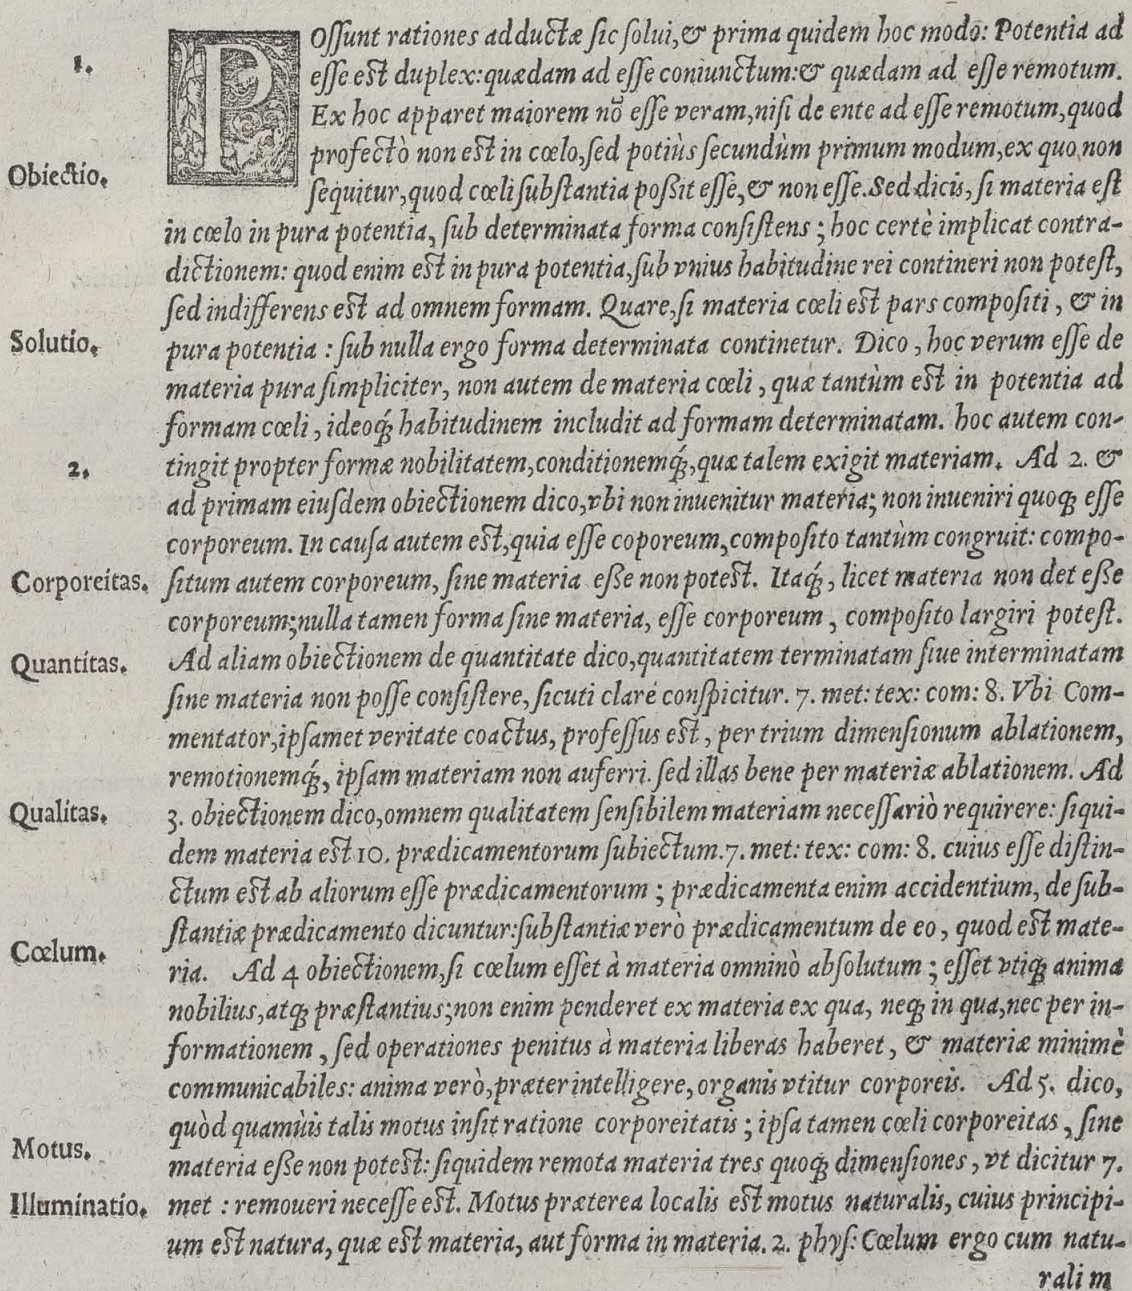 POſſunt rationes adductæ ſic ſolui,& prima quidem hoc modo: Potentia ad
1.
eſſe est duplex: quædam ad eſſe coniunctum:& quædam ad eſſe remotum.
Ex hoc apparet maiorem nō eſſe veram,niſi de ente ad eſſe remotum,quod
profectò non est in cœlo,ſed potiùs ſecundùm primum modum,ex quo non
Obiectio.
ſequitur,quod cœli ſubſtantia poßit eſſe,& non eſſe.Sed dicis, ſi materia eſt
in cœlo in pura potentia, ſub determinata forma conſiſtens ; hoc certè implicat contra-
dictionem: quod enim est in pura potentia,ſub vnius habitudine rei contineri non poteſt,
ſed indifferens est ad omnem formam. Quare,ſi materia cœli est pars compoſiti , & in
Solutio.
pura potentia : ſub nulla ergo forma determinata continetur. Dico , hoc verum eſſe de
materia pura ſimpliciter, non autem de materia cœli , quæ tantùm est in potentia ad
formam cœli , ideoq́; habitudinem includit ad formam determinatam. hoc autem con-
2.
tingit propter formæ nobilitatem,conditionemq́;,quæ talem exigit materiam. Ad 2. &
ad primam eiuſdem obiectionem dico,vbi non inuenitur materia; non inueniri quoq; eſſe
corporeum. In cauſa autem est,quia eſſe coporeum,compoſito tantùm congruit: compo-
Corporeitas.
ſitum autem corporeum, ſine materia eße non potest. Itaq́;, licet materia non det eße
corporeum;nulla tamen forma ſine materia, eſſe corporeum , compoſito largiri poteſt.
Quantitas.
Ad aliam obiectionem de quantitate dico,quantitatem terminatam ſiue interminatam
ſine materia non poſſe conſiſtere, ſicuti claré conſpicitur. 7. met: tex: com: 8. Vbi Com-
mentator,ipſamet veritate coactus, profeſſus est , per trium dimenſionum ablationem,
remotionemq́;, ipſam materiam non auferri. ſed illas bene per materiæ ablationem. Ad
Qualitas.
3. obiectionem dico,omnem qualitatem ſenſibilem materiam neceſſariò requirere: ſiqui-
dem materia est 10. prædicamentorum ſubiectum.7. met: tex: com: 8. cuius eſſe diſtin-
ctum est ab aliorum eſſe prædicamentorum ; prædicamenta enim accidentium, de ſub-
ſtantiæ prædicamento dicuntur:ſubſtantiæ verò prædicamentum de eo , quod est mate-
Cœlum.
ria. Ad 4 obiectionem,ſi cœlum eſſet à materia omninò abſolutum ; eſſet vtiq; anima
nobilius,atq; præſtantius;non enim penderet ex materia ex qua, neq; in qua,nec per in-
formationem , ſed operationes penitus à materia liberas haberet , & materiæ minimè
communicabiles: anima verò,præter intelligere,organis vtitur corporeis. Ad 5. dico,
quòd quamùis talis motus inſit ratione corporeitatis ; ipſa tamen cœli corporeitas , ſine
Motus.
materia eße non potest: ſiquidem remota materia tres quoq; dimenſiones , vt dicitur 7.
Illuminatio.
met : remoueri neceſſe est. Motus præterea localis est motus naturalis, cuius principi-
um est natura, quæ est materia, aut forma in materia. 2. phyſ: Cœlum ergo cum natu-
rali m